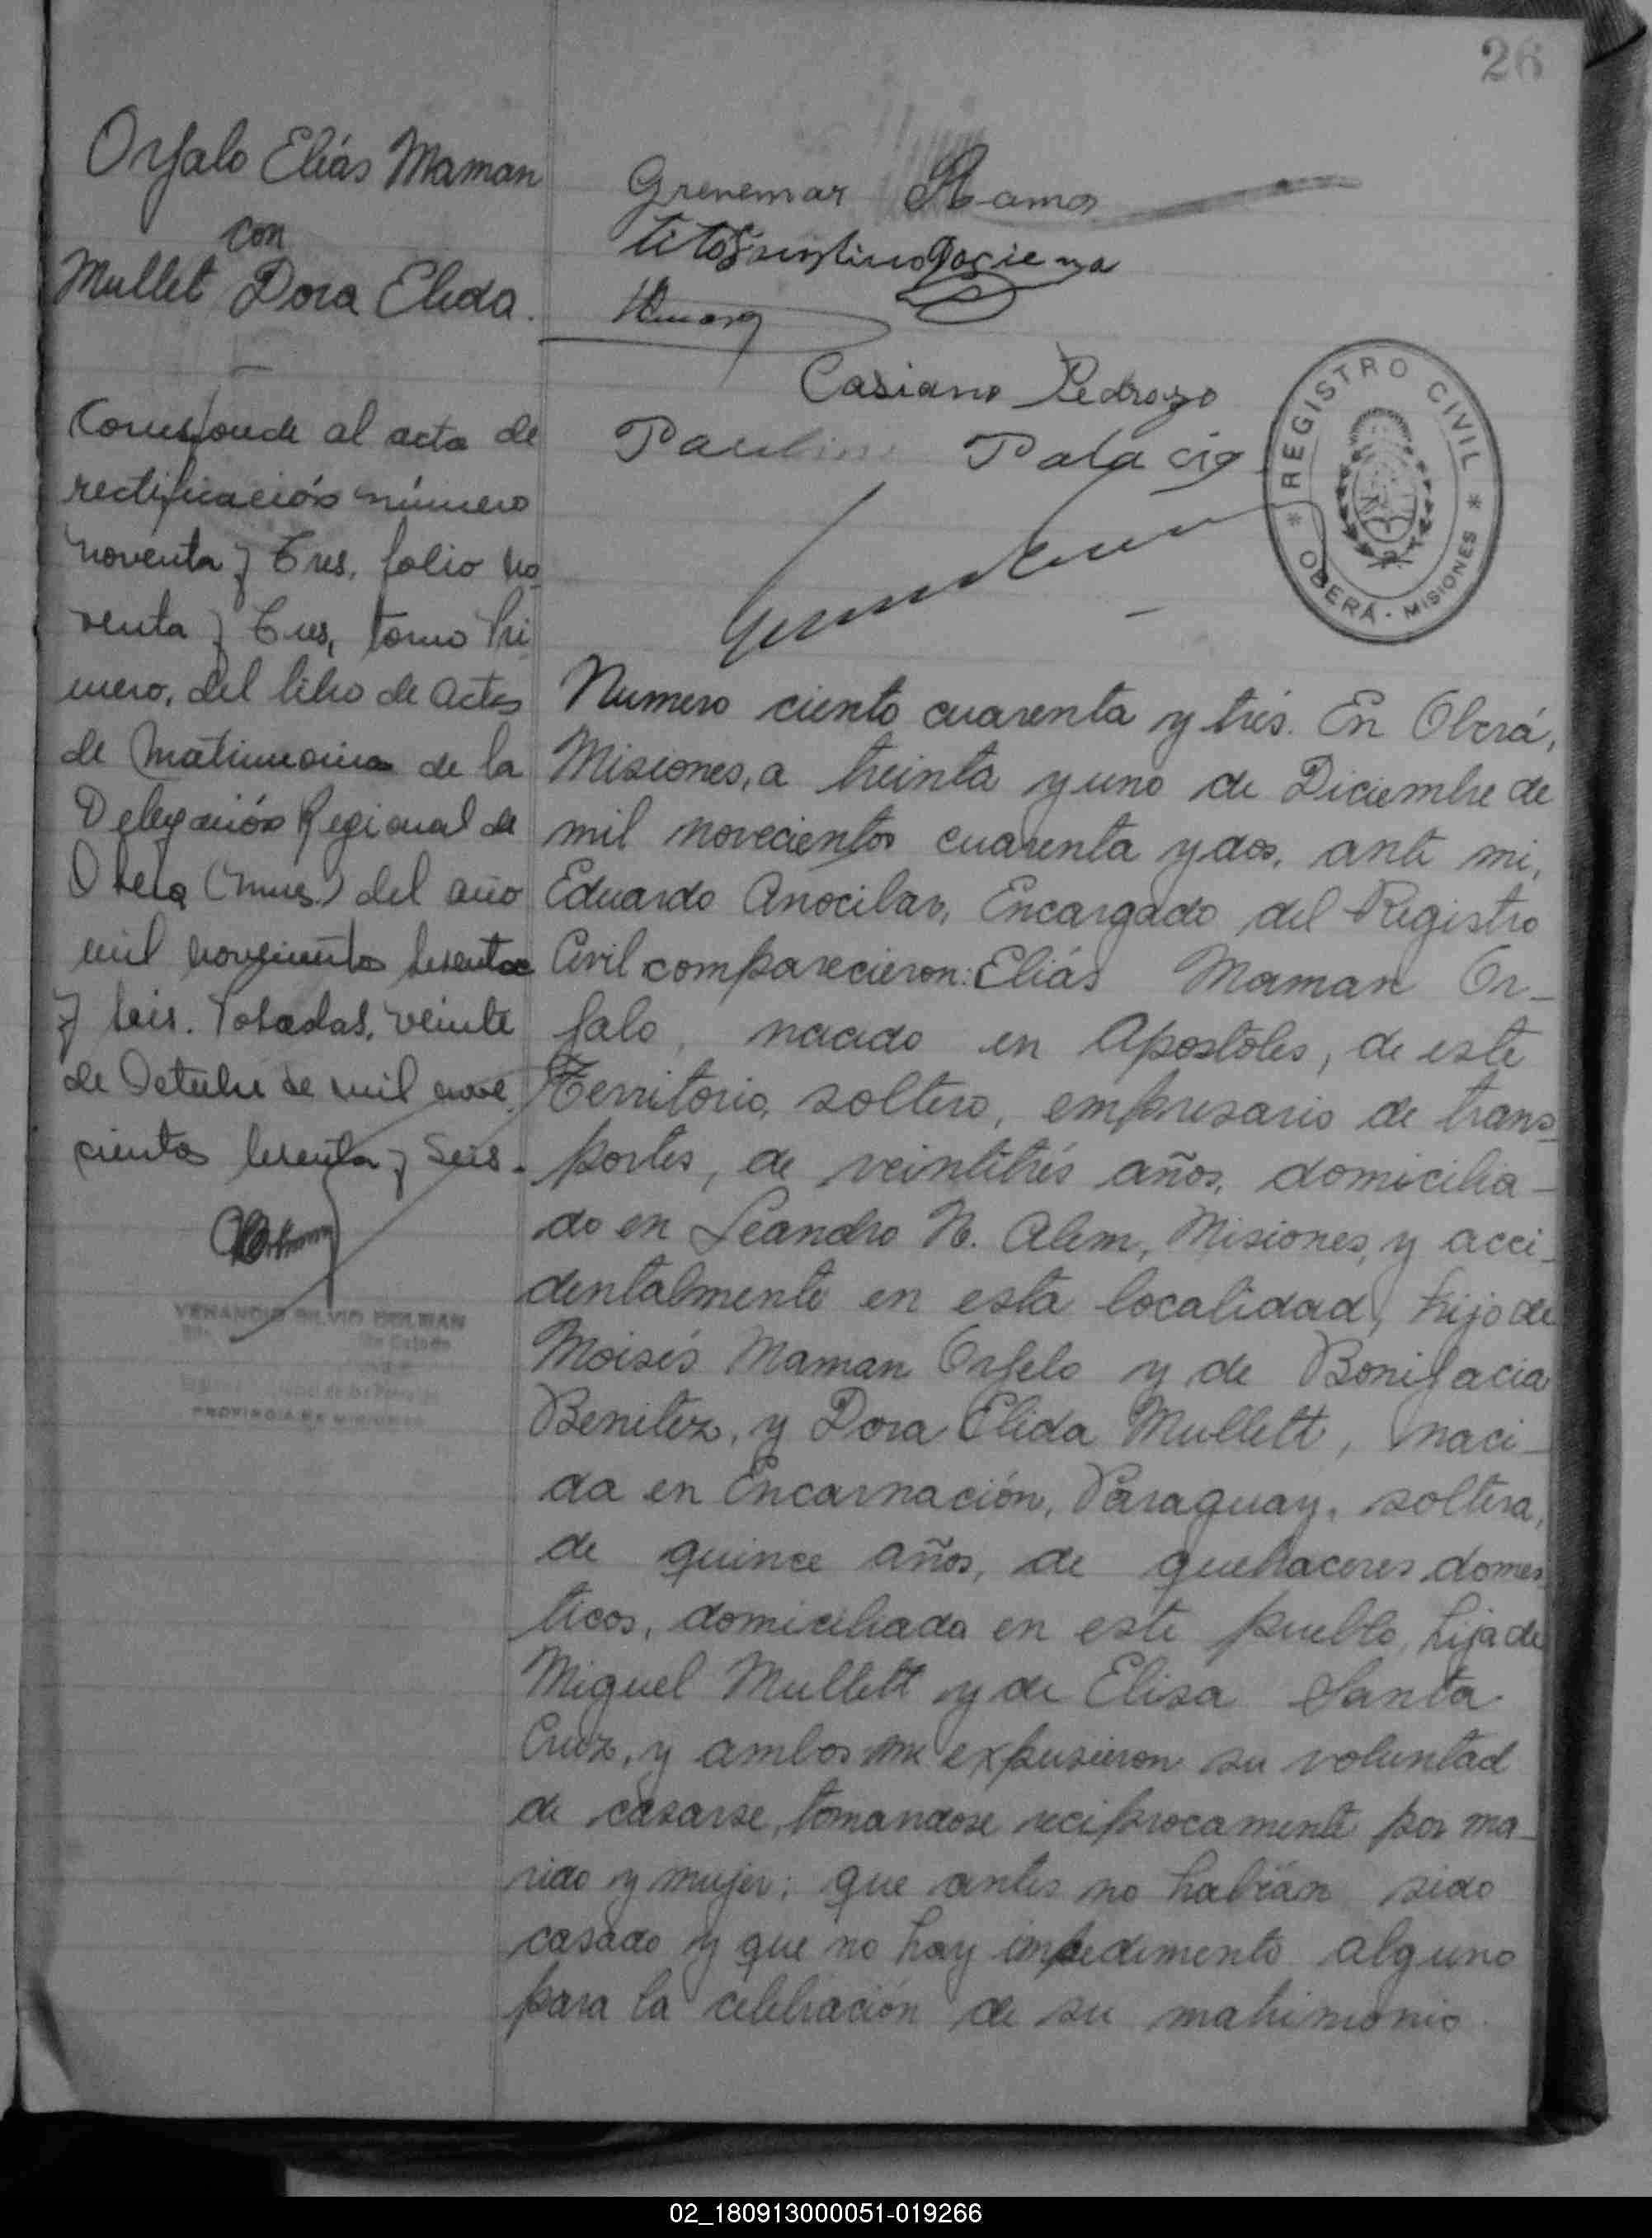 26
Orfalo Elías Maman
con
Mullet Dora Elida.
Corresponde al acta de
rectificación número
noventa y tres, folio no
venta y tres, tomo Pri
mero, del libro de actas
de Matrimonios de la
Delegación Regional de
Obera (Mnes.) del año
mil novecientos sesenta
y seis. Posadas, veinte
de Octubre de mil nove
cientos sesenta y seis.
VENANCIO SILVIO
PROVINCIA DE MISIONES
Grenemar Ramos
Casiano Pedrozo
Paulino Palacio
* REGISTRO CIVIL *
OBERÁ - MISIONES
Numero ciento cuarenta y trés. En Oberá,
Misiones, a treinta y uno de Diciembre de
mil novecientos cuarenta y dos, ante mi,
Eduardo Anocibar, Encargado del Registro
Civil comparecieron: Eliás Maman Or-
falo, nacido en Apostoles, de este
Territorio, soltero, empresario de trans-
portes, de veintitrés años, domicilia-
do en Leandro N. Alem, Misiones, y acci-
dentalmente en esta localidad, hijo de
Moisés Maman Orfelo y de Bonifacia
Benitez, y Dora Elida Mullett, naci-
da en Encarnación, Paraguay, soltera,
de quince años, de quehaceres domes-
ticos, domiciliada en este pueblo, hija de
Miguel Mullett y de Elisa Santa
Cruz, y ambos me expusieron su voluntad
de casarse, tomandose reciprocamente por ma-
rido y mujer; que antes no habían sido
casado y que no hay impedimento alguno
para la celebración de su matrimonio.
02_180913000051-019266